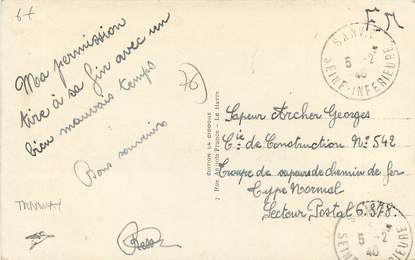 F.M.
Ma permission
tire à sa fin avec un
bien mauvais temps
Bons souvenirs
76
ÉDITION LA CIGOGNE
7 Rue Anatole France - Le Havre
SANVIC
5 -2
40
SEINE-INFERIEURE
Sapeur Archer Georges
Cie de Construction No 542
Troupe de sapeurs de chemin de fer
Type Normal
Secteur Postal 6.378.
5 -2
40
SEINE-INFERIEURE